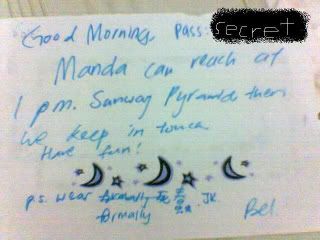 Good Morning. Pass: secret
Manda can reach at
1 pm. Sunway Pyramid then
we keep in touch
Have fun!
p.s. wear JK.
formally
Bel.